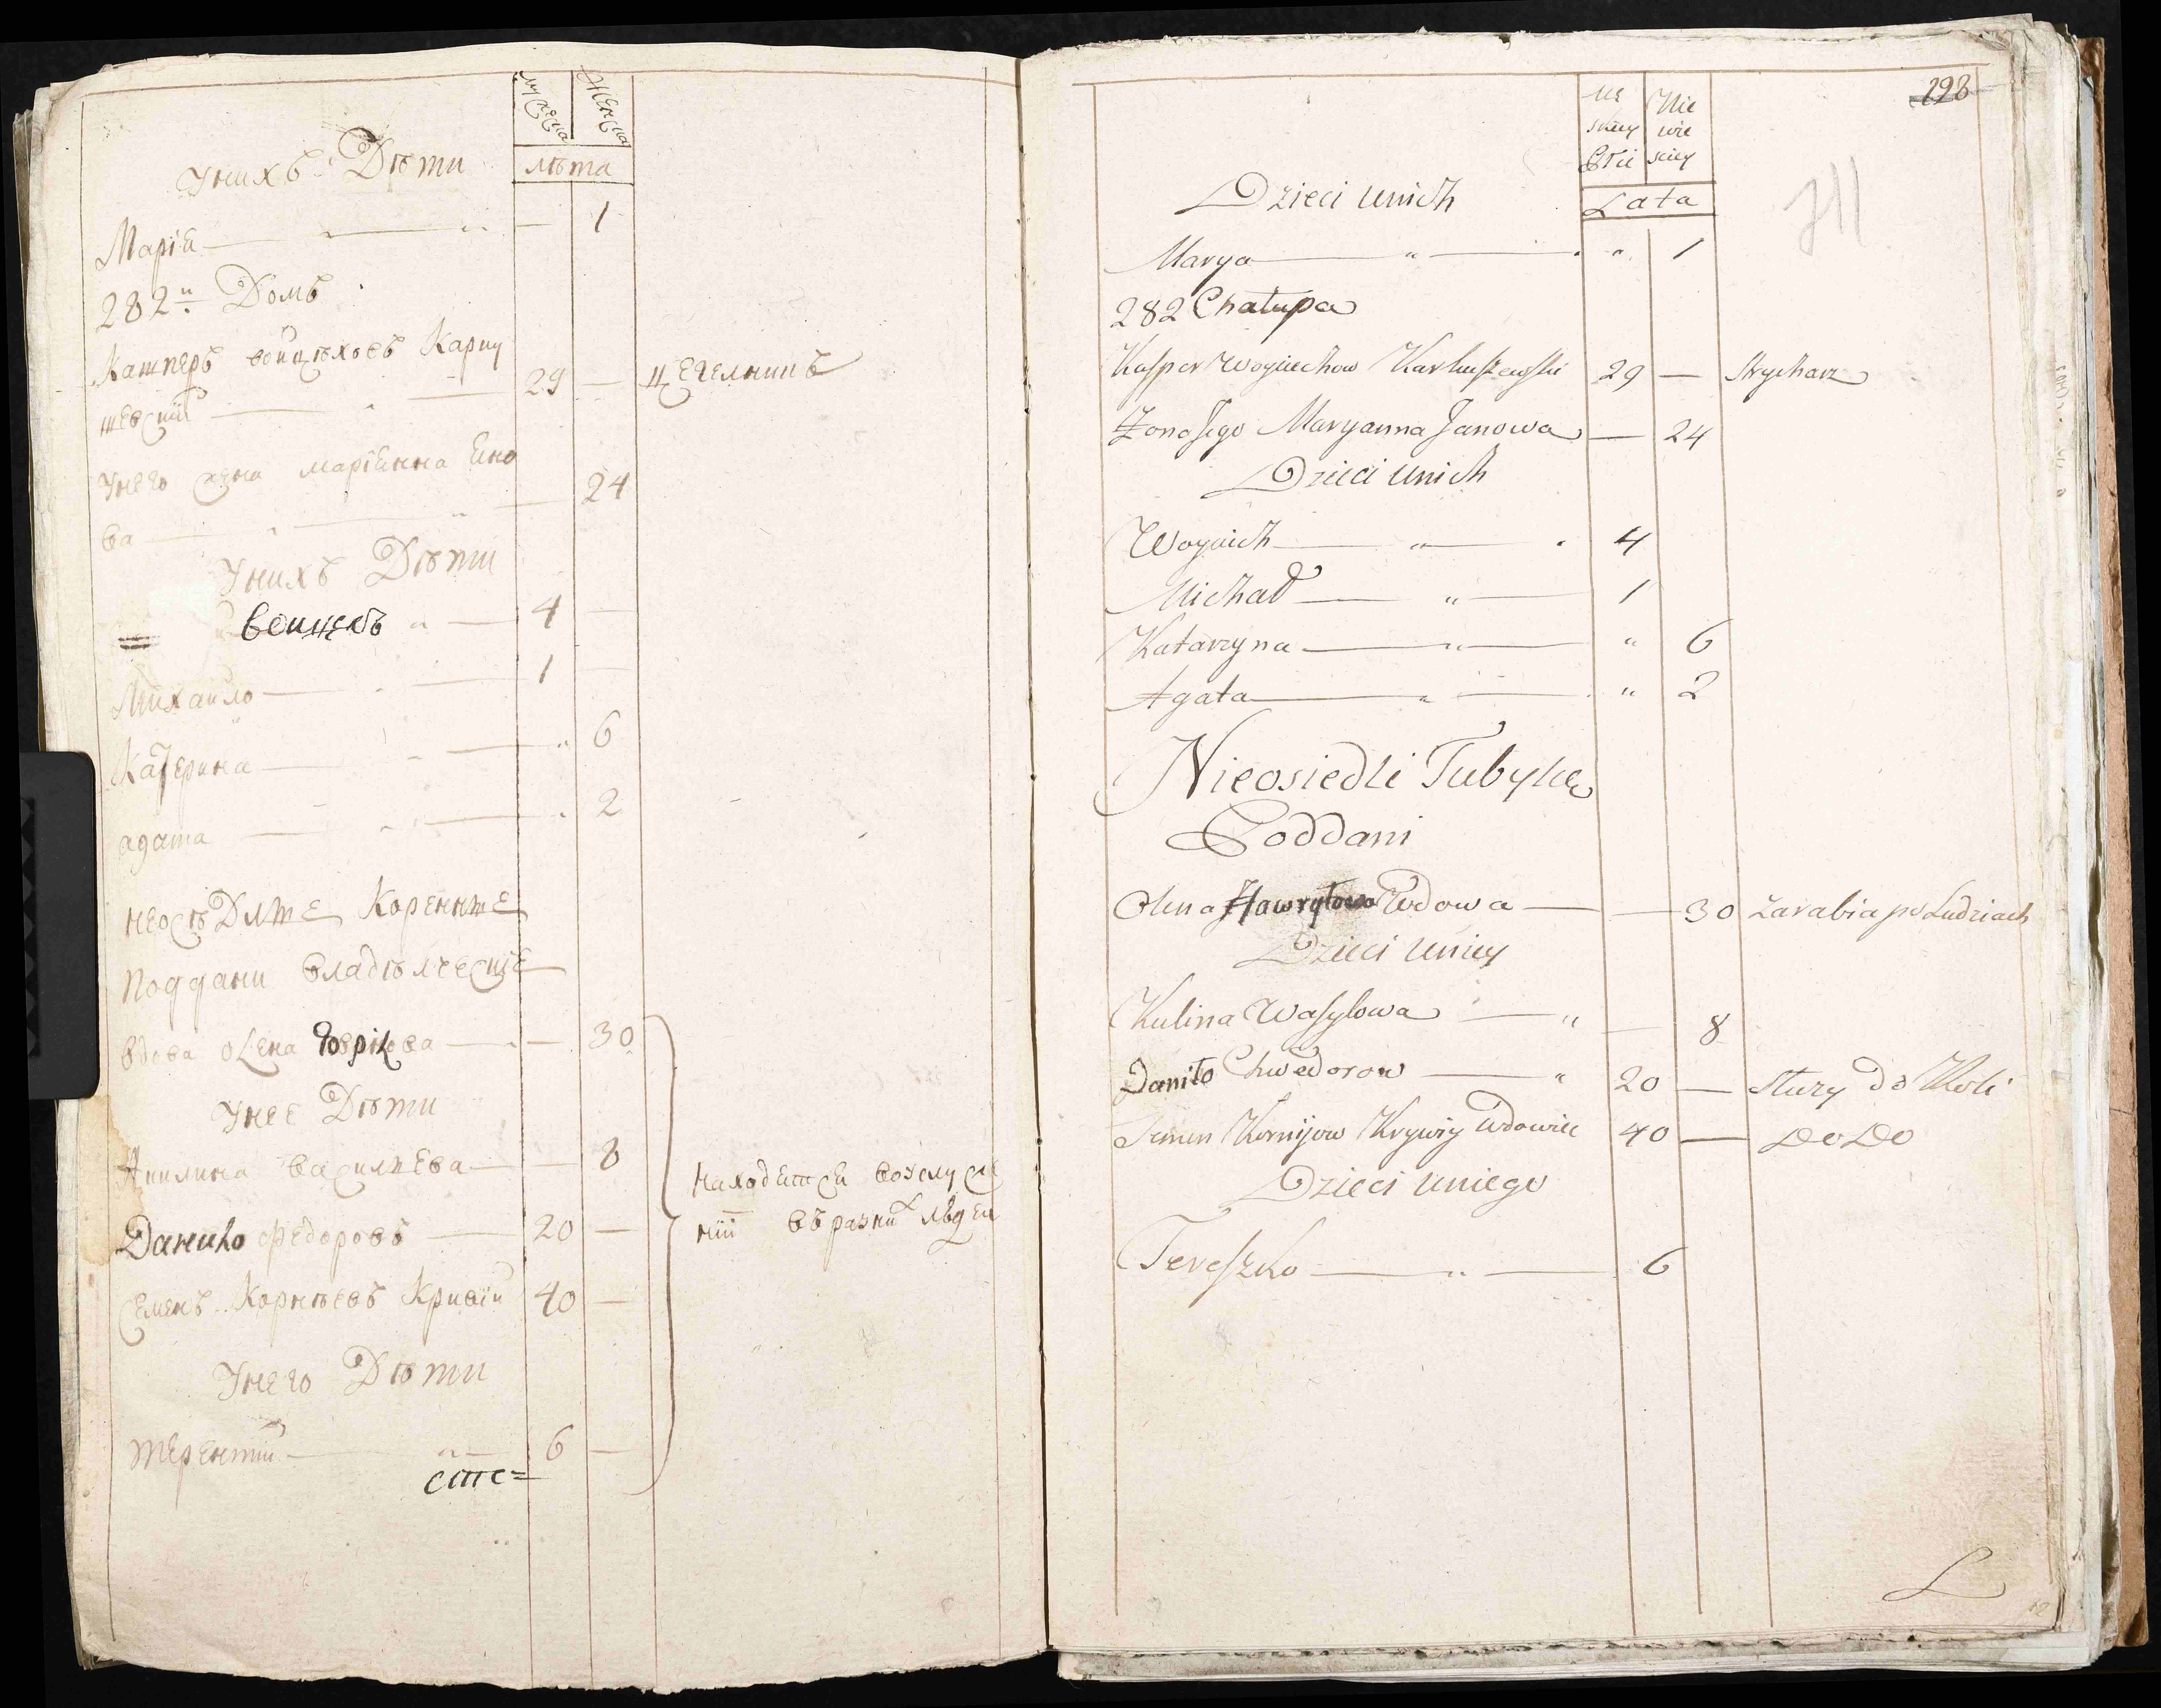 Мужеска Женска
Унихъ Дѣти
лѣта
Маріа — — 1
282й Домъ
Катперъ войцѣховъ Карпу
шевскій — 29 — цегелникъ
Унего жена маріанна Яно
ва — — 24
Унихъ Дѣти
войцехъ — 4 —
Михайло — 1 —
Катерина — " 6
агата — " 2
неосѣДлые Коренные
поддани владѣлческие
вдова олена — — 30
Унее Дѣти
Акилина василиева — — 8
Данило федоровъ — 20 —
Семенъ Корнѣевъ Кривій 40 —
Унего Дѣти
терентій — 6 —
находятся вовслуже
ніи въ разних людей
сте=
298
Mę skiey Płci
Nie wie sciey
Dzieci unich
Lata
Marya — " — " 1
282 Chałupa
Kasper Woyciechow Karluszewski 29 — Strycharz
Żona Jego Maryanna Janowa — 24
Dzieci unich
Woyciech — " 4
Michał — " — 1
Katarzyna — " — " 6
Agata — " — " 2
Nieosiedli Tubylcy
Poddani
Olena Hawryłowa Wdowa — — 30 zarabia po Ludziach
Dzieci uniey
Kulina Wasylowa — " — 8
Daniło Chwedorow — " 20 — służy do Woli
Semen Kornijow Krywiy Wdowiec 40 — Do Do
Dzieci uniego
Tereszko — " — 6